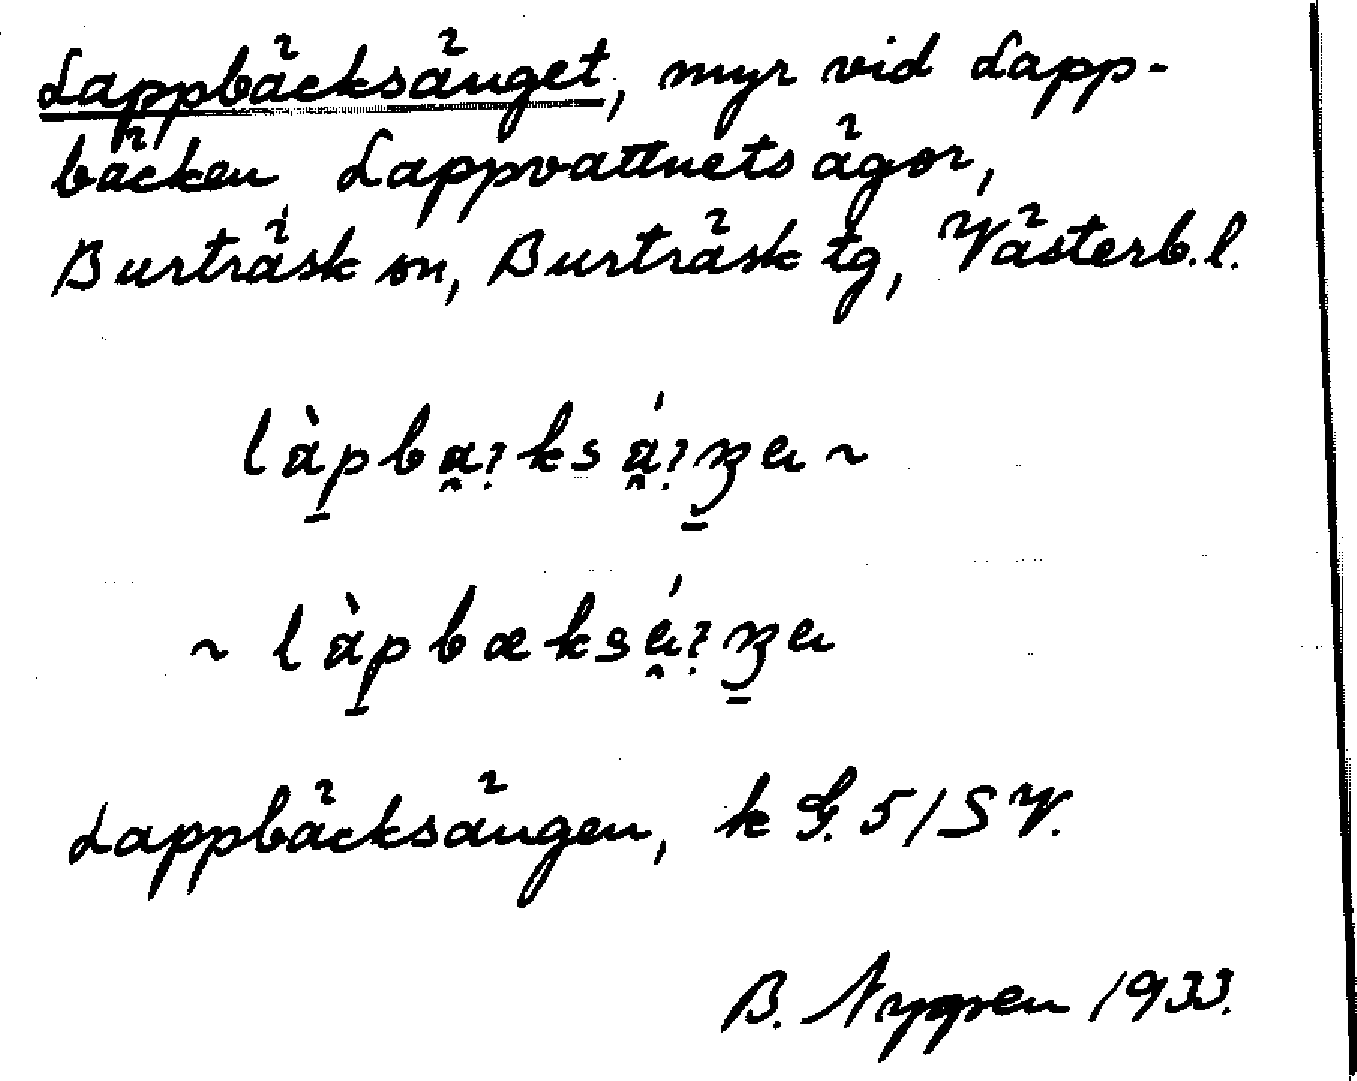 Lappbäcksänget, myr vid Lapp-
bäcken Lappvattnets ägor,
Burträsk sn, Burträsk tg, Västerb.l.
Lappbäcksängen, k G. 5/SV.
B. Nygren 1933.